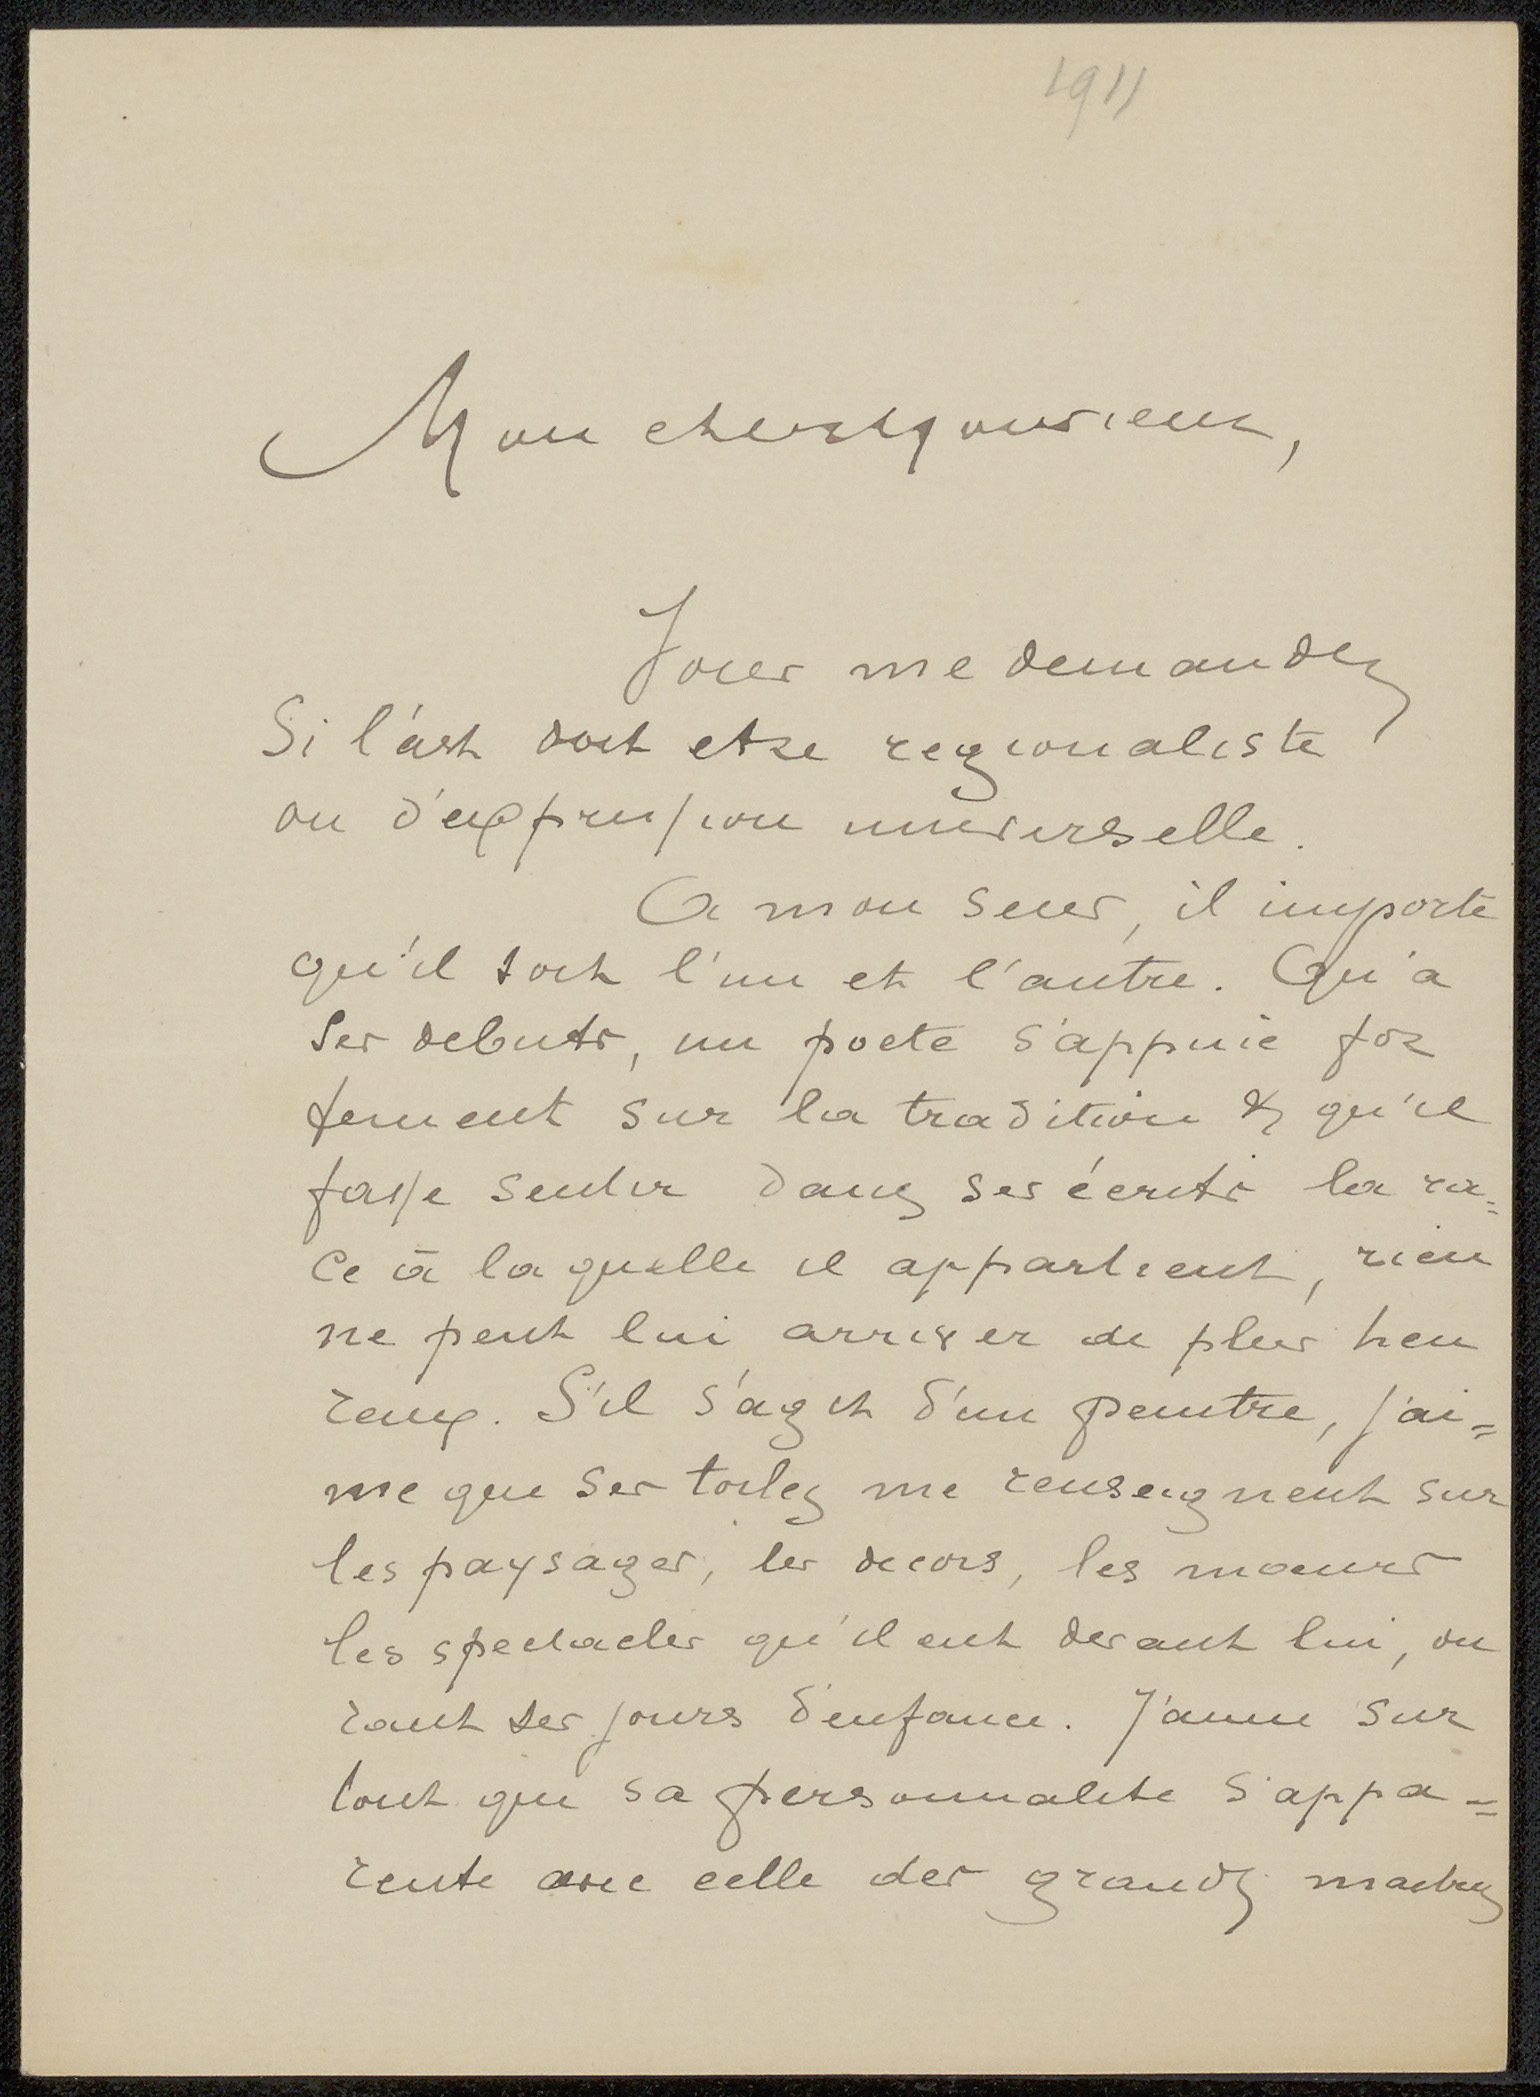 1911
Mon cher Monsieur,
Vous me demandez
si l'art doit etre regionaliste
ou d'expression universelle.
A mon sens, il importe
qu'il soit l'un et l'autre. Qu'a
ses debuts, un poete s'appuie for
tement sur la tradition & qu'il
fasse sentir dans ses écrits la ra=
ce à laquelle il appartient, rien
ne peut lui arriver de plus heu
reux. S'il s'agit d'un peintre, j'ai=
me que ses toiles me renseignent sur
les paysages, les decors, les moeurs
les spectacles qu'il eut devant lui, du
rant ses jours d'enfance. J'aime sur
tout que sa personnalite s'appa=
rente avec celle des grands maitres